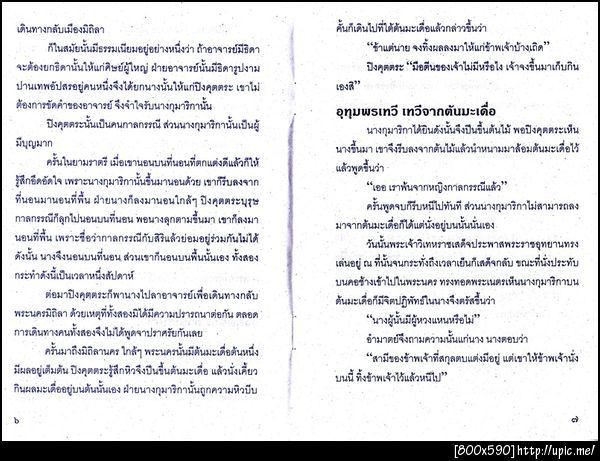 เดินทางกลับเมืองมิถิลา
ก็ในสมัยนั้นมีธรรมเนียมอยู่อย่างหนึ่งว่า ถ้าอาจารย์มีธิดา
จะต้องยกธิดานั้นให้แก่ศิษย์ผู้ใหญ่ ฝ่ายอาจารย์นั้นมีธิดารูปงาม
ปานเทพอัปสรอยู่คนหนึ่งจึงได้ยกนางนั้นให้แก่ปิงคุตตระ เขาไม่
ต้องการขัดคำของอาจารย์ จึงจำใจรับนางกุมาริกานั้น
ปิงคุตตระนั้นเป็นคนกาลกรรณี ส่วนนางกุมาริกานั้นเป็นผู้
มีบุญมาก
ครั้นในยามราตรี เมื่อเขานอนบนที่นอนที่ตกแต่งดีแล้วก็ให้
รู้สึกอึดอัดใจ เพราะนางกุมาริกานั้นขึ้นมานอนด้วย เขาก็รีบลงจาก
ที่นอนมานอนที่พื้น ฝ่ายนางก็ลงมานอนใกล้ๆ ปิงคุตตระบุรุษ
กาลกรรณีก็ลุกไปนอนบนที่นอน พอนางลุกตามขึ้นมา เขาก็ลงมา
นอนที่พื้น เพราะชื่อว่ากาลกรรณีกับสิริแล้วย่อมอยู่ร่วมกันไม่ได้
ดังนั้น นางจึงนอนบนที่นอน ส่วนเขาก็นอนบนพื้นนั้นเอง ทั้งสอง
กระทำดังนี้เป็นเวลาหนึ่งสัปดาห์
ต่อมาปิงคุตตระก็พานางไปลาอาจารย์เพื่อเดินทางกลับ
พระนครมิถิลา ด้วยเหตุที่ทั้งสองมิได้มีความปรารถนาต่อกัน ตลอด
การเดินทางคนทั้งสองจึงไม่ได้พูดจาปราศรัยกันเลย
ครั้นมาถึงมิถิลานคร ใกล้ๆ พระนครนั้นมีต้นมะเดื่อต้นหนึ่ง
มีผลอยู่เต็มต้น ปิงคุตตระรู้สึกหิวจึงปีนขึ้นต้นมะเดื่อ แล้วนั่งเคี้ยว
กินผลมะเดื่ออยู่บนต้นนั้นเอง ฝ่ายนางกุมาริกานั้นถูกความหิวบีบ
๖
คั้นก็เดินไปที่ใต้ต้นมะเดื่อแล้วกล่าวขึ้นว่า
“ข้าแต่นาย จงทิ้งผลลงมาให้แก่ข้าพเจ้าบ้างเถิด”
ปิงคุตตระ “มือตีนของเจ้าไม่มีหรือไง เจ้าจงขึ้นมาเก็บกิน
เองสิ”
อุทุมพรเทวี เทวีจากต้นมะเดื่อ
นางกุมาริกาได้ยินดังนั้นจึงปีนขึ้นต้นไม้ พอปิงคุตตระเห็น
นางขึ้นมา เขาจึงรีบลงจากต้นไม้แล้วนำหนามมาล้อมต้นมะเดื่อไว้
แล้วพูดขึ้นว่า
“เออ เราพ้นจากหญิงกาลกรรณีแล้ว”
ครั้นพูดจบก็รีบหนีไปทันที ส่วนนางกุมาริกาไม่สามารถลง
มาจากต้นมะเดื่อก็ได้แต่นั่งอยู่บนนั้นนั่นเอง
วันนั้นพระเจ้าวิเทหราชเสด็จประพาสพระราชอุทยานทรง
เล่นอยู่ ณ ที่นั้นจนกระทั่งถึงเวลาเย็นก็เสด็จกลับ ขณะที่นั่งประทับ
บนคอช้างเข้าไปในพระนคร ทรงทอดพระเนตรเห็นนางกุมาริกาบน
ต้นมะเดื่อก็มีจิตปฏิพัทธ์ในนางจึงตรัสขึ้นว่า
“นางผู้นั้นมีผู้หวงแหนหรือไม่”
อำมาตย์จึงถามความนั้นแก่นาง นางตอบว่า
“สามีของข้าพเจ้าที่สกุลตบแต่งมีอยู่ แต่เขาให้ข้าพเจ้านั่ง
บนนี้ ทิ้งข้าพเจ้าไว้แล้วหนีไป”
๗
[800x590]http://upic.me/